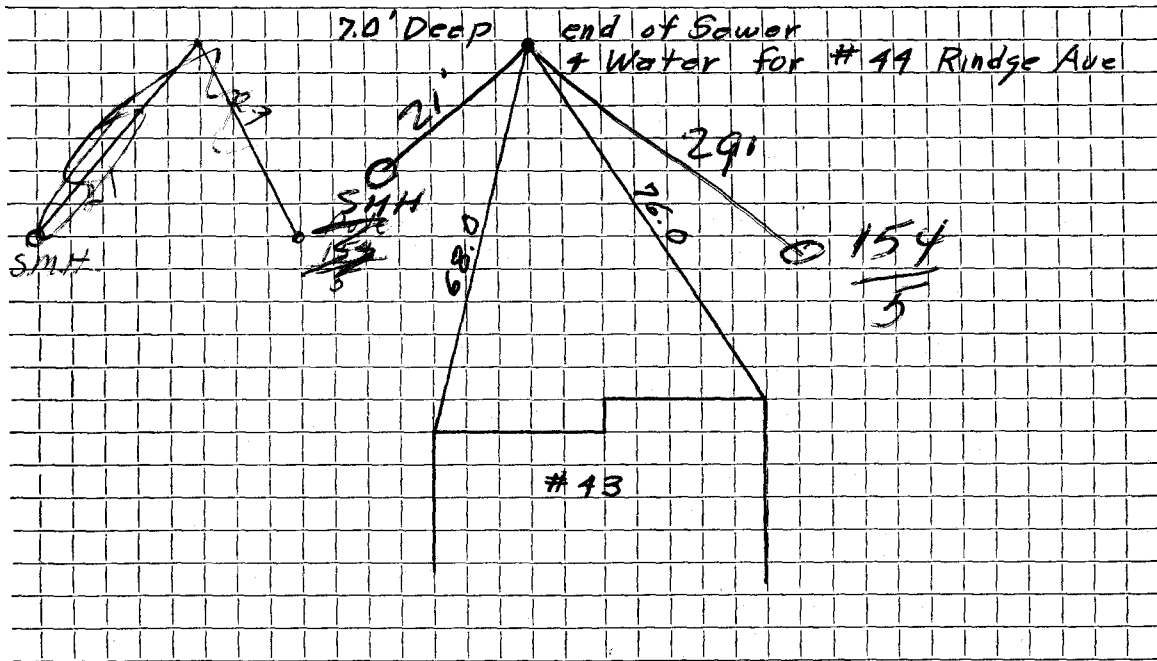 7.0' Deep end of Sewer
+ Water for # 44 Rindge Ave
21'
29'
SMH
S.M.H.
21
68.0
76.0
154
5
154
5
# 43